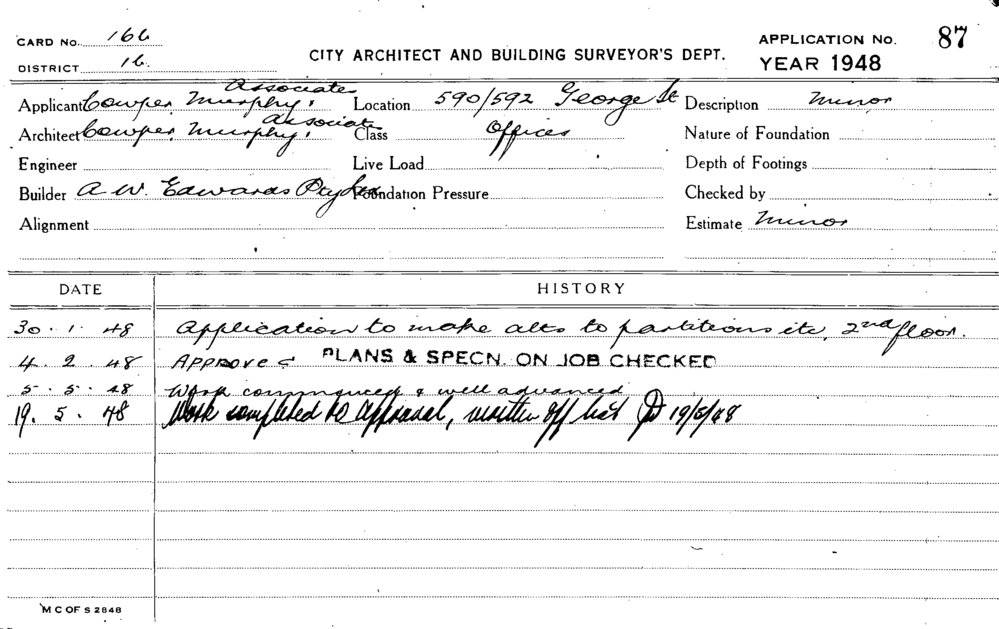 CARD No. 166
DISTRICT 16.
CITY ARCHITECT AND BUILDING SURVEYOR'S DEPT.
APPLICATION No. 87
YEAR 1948
Applicant Cowper, Murphy, Associates
Location 590/592 George St
Description Minor
Architect Cowper, Murphy, Associate
Class Offices
Nature of Foundation
Engineer
Live Load
Depth of Footings
Builder A. W. Edwards Pty
Foundation Pressure
Checked by
Alignment
Estimate Minor
DATE HISTORY
30. 1. 48 Application to make alts to partitions etc, 2nd floor.
4. 2. 48 Approved PLANS & SPECN. ON JOB CHECKED
5. 5. 48 Work commenced & well advanced
19. 5. 48 Work completed to approval, written off list 19/5/48
M C OF S 2848